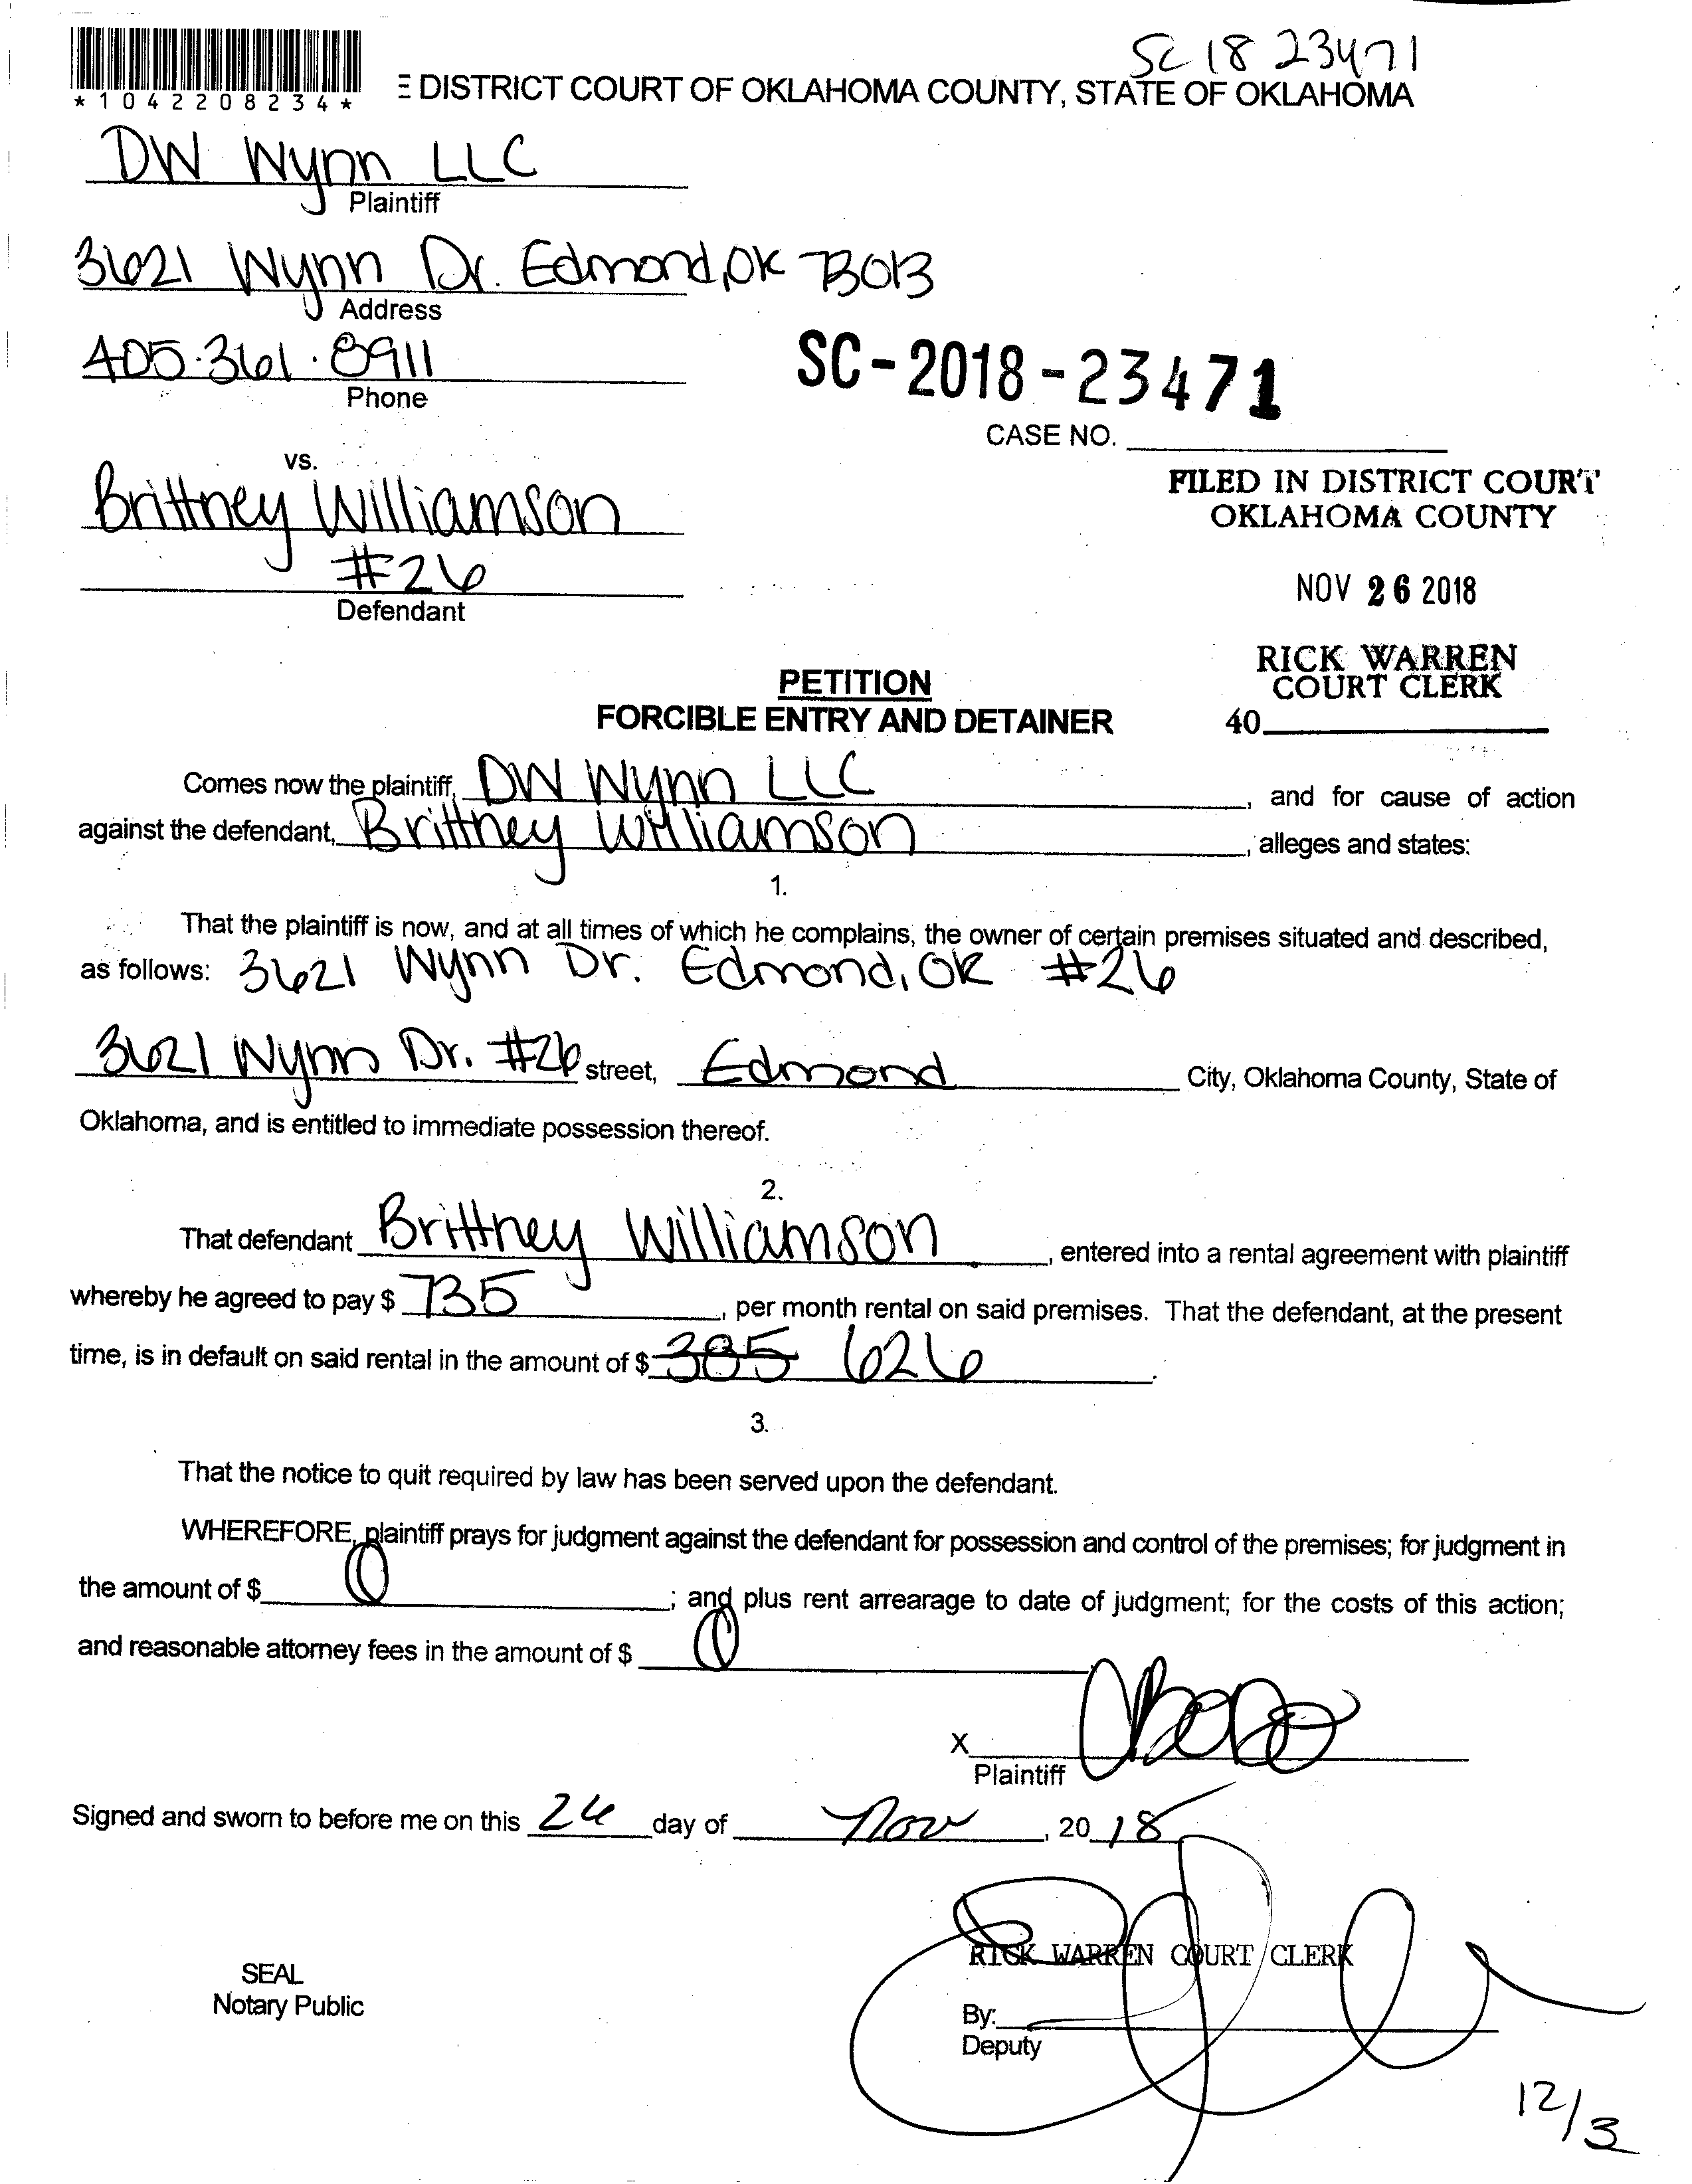 SC 18 23471
*1042208234*
E DISTRICT COURT OF OKLAHOMA COUNTY, STATE OF OKLAHOMA
DW Wynn LLC
Plaintiff
3621 Wynn Dr. Edmond, OK 73013
Address
405.361.8911
Phone
SC-2018-23471
CASE NO.
vs.
Brittney Williamson
#26
Defendant
FILED IN DISTRICT COURT
OKLAHOMA COUNTY
NOV 26 2018
RICK WARREN
COURT CLERK
40
PETITION
FORCIBLE ENTRY AND DETAINER
Comes now the plaintiff, DW Wynn LLC, and for cause of action
against the defendant, Brittney Williamson, alleges and states:
1.
That the plaintiff is now, and at all times of which he complains, the owner of certain premises situated and described,
as follows: 3621 Wynn Dr. Edmond, OK #26
3621 Wynn Dr. #26 street, Edmond City, Oklahoma County, State of
Oklahoma, and is entitled to immediate possession thereof.
2.
That defendant Brittney Williamson, entered into a rental agreement with plaintiff
whereby he agreed to pay $ 735, per month rental on said premises. That the defendant, at the present
time, is in default on said rental in the amount of $ 385 626.
3.
That the notice to quit required by law has been served upon the defendant.
WHEREFORE, plaintiff prays for judgment against the defendant for possession and control of the premises; for judgment in
the amount of $ 0; and plus rent arrearage to date of judgment; for the costs of this action;
and reasonable attorney fees in the amount of $ 0
X
Plaintiff
Signed and sworn to before me on this 26 day of Nov, 2018
RICK WARREN COURT CLERK
SEAL
Notary Public
By:
Deputy
12/3